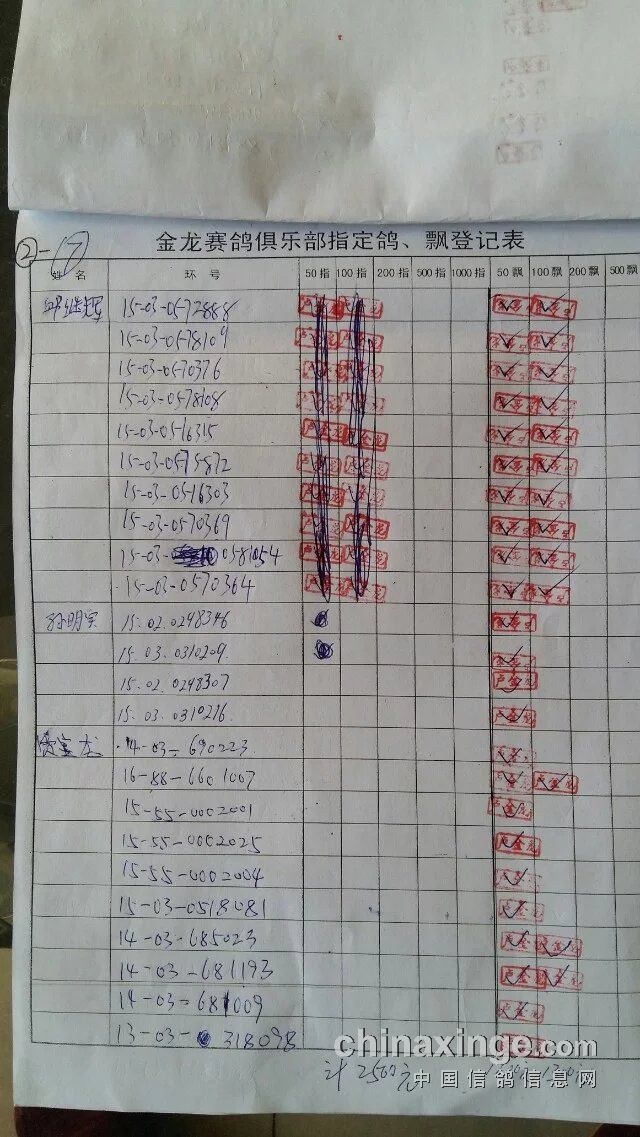 ②-17
金龙赛鸽俱乐部指定鸽、飘登记表
姓名 环号 50指 100指 200指 500指 1000指 50飘 100飘 200飘 500飘
15-03-0572888
15-03-0578109
15-03-0570376
15-03-0578108
15-03-0516315
15-03-0575872
15-03-0516303
15-03-0570369
15-03-0581054
15-03-0570364
孙明实 15.02.0298346
15.03.0310209.
15.02.0298307
15.03.0310216.
宝龙 14-03-690223.
16-88-6601007
15-55-0002001
15-55-0002025
15-55-0002004
15-03-0518081
14-03-685023
14-03-681193
14-03-681009
13-03-318098
计2500元
chinaxinge.com
中国信鸽信息网